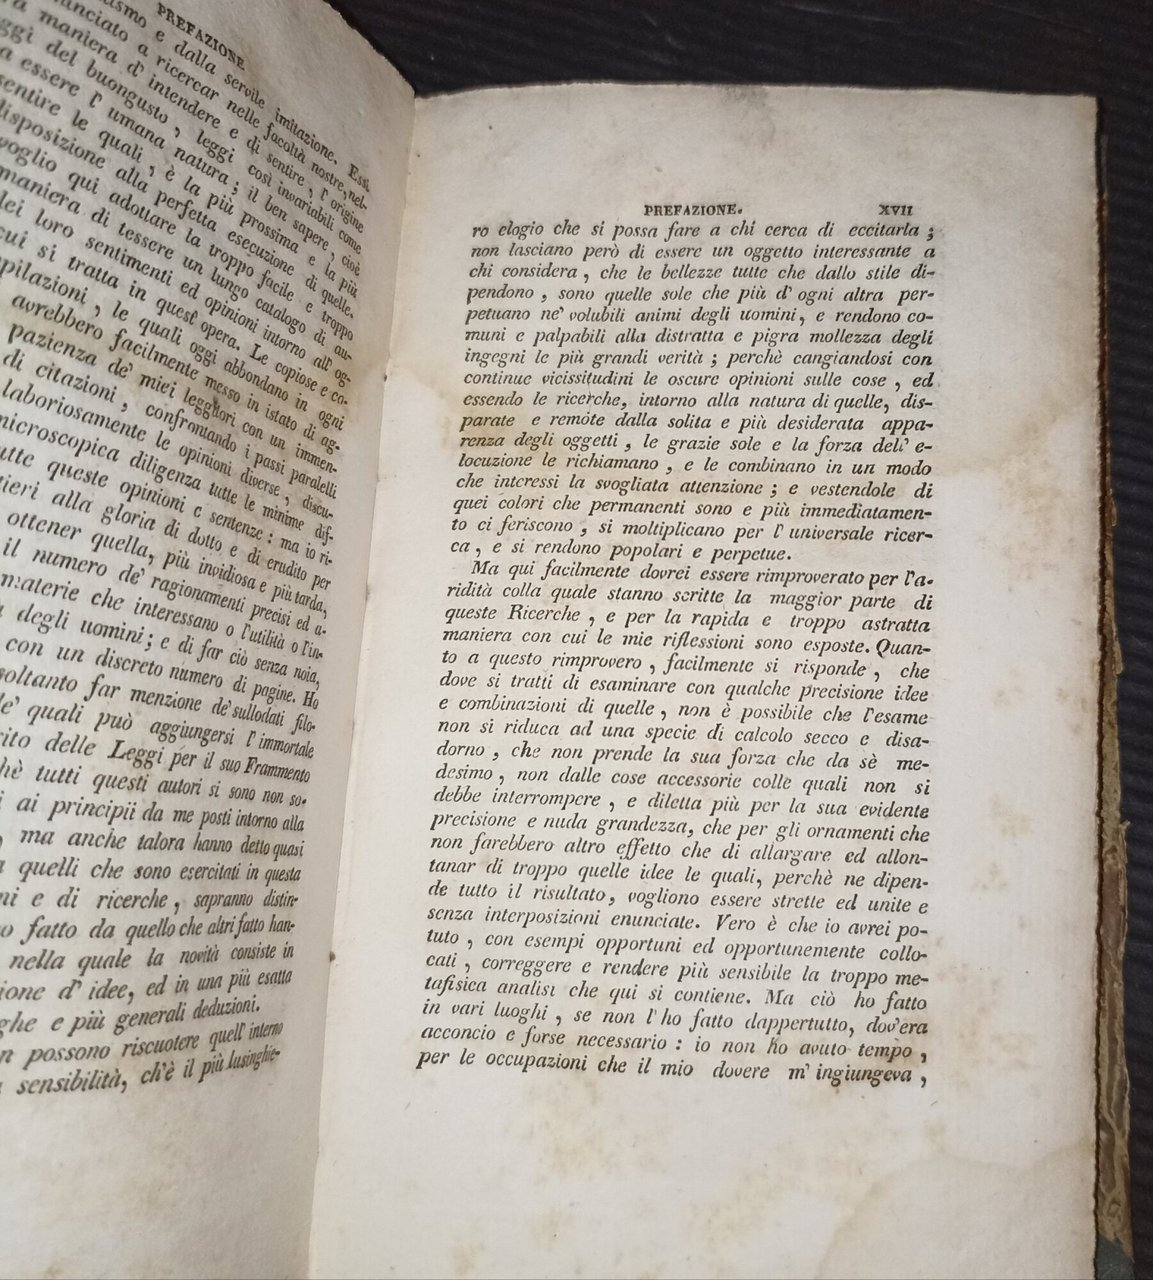 PREFAZIONE
e dalla servile imitazione. Essi
a ricercar nelle facoltà nostre, nel-
maniera d' intendere e di sentire, l' origine
del buongusto, leggi così invariabili come
essere l' umana natura; il ben sapere, cioè
sentire le quali, è la più prossima e la più
disposizione alla perfetta esecuzione di quelle.
voglio qui adottare la troppo facile e troppo
maniera di tessere un lungo catalogo di au-
loro sentimenti ed opinioni intorno all' og-
cui si tratta in quest' opera. Le copiose e co-
pilazioni, le quali oggi abbondano in ogni
avrebbero facilmente messo in istato di ag-
pazienza de' miei leggitori con un immen-
di citazioni, confrontando i passi paralelli
laboriosamente le opinioni diverse, discu-
microscopica diligenza tutte le minime dif-
queste opinioni e sentenze: ma io ri-
alla gloria di dotto e di erudito per
ottener quella, più invidiosa e più tarda,
il numero de' ragionamenti precisi ed a-
materie che interessano o l'utilità o l'in-
degli uomini; e di far ciò senza noia,
con un discreto numero di pagine. Ho
soltanto far menzione de' sullodati filo-
quali può aggiungersi l' immortale
delle Leggi per il suo Frammento
tutti questi autori si sono non so-
ai principii da me posti intorno alla
, ma anche talora hanno detto quasi
quelli che sono esercitati in questa
e di ricerche, sapranno distin-
fatto da quello che altri fatto han-
nella quale la novità consiste in
d' idee, ed in una più esatta
e più generali deduzioni.
possono riscuotere quell' interno
sensibilità, ch'è il più lusinghie-
PREFAZIONE. XVII
ro elogio che si possa fare a chi cerca di eccitarla;
non lasciano però di essere un oggetto interessante a
chi considera, che le bellezze tutte che dallo stile di-
pendono, sono quelle sole che più d' ogni altra per-
petuano ne' volubili animi degli uomini, e rendono co-
muni e palpabili alla distratta e pigra mollezza degli
ingegni le più grandi verità; perchè cangiandosi con
continue vicissitudini le oscure opinioni sulle cose, ed
essendo le ricerche, intorno alla natura di quelle, dis-
parate e remote dalla solita e più desiderata appa-
renza degli oggetti, le grazie sole e la forza dell' e-
locuzione le richiamano, e le combinano in un modo
che interessi la svogliata attenzione; e vestendole di
quei colori che permanenti sono e più immediatamen-
to ci feriscono, si moltiplicano per l' universale ricer-
ca, e si rendono popolari e perpetue.
Ma qui facilmente dovrei essere rimproverato per l'a-
ridità colla quale stanno scritte la maggior parte di
queste Ricerche, e per la rapida e troppo astratta
maniera con cui le mie riflessioni sono esposte. Quan-
to a questo rimprovero, facilmente si risponde, che
dove si tratti di esaminare con qualche precisione idee
e combinazioni di quelle, non è possibile che l'esame
non si riduca ad una specie di calcolo secco e disa-
dorno, che non prende la sua forza che da sè me-
desimo, non dalle cose accessorie colle quali non si
debbe interrompere, e diletta più per la sua evidente
precisione e nuda grandezza, che per gli ornamenti che
non farebbero altro effetto che di allargare ed allon-
tanar di troppo quelle idee le quali, perchè ne dipen-
de tutto il risultato, vogliono essere strette ed unite e
senza interposizioni enunciate. Vero è che io avrei po-
tuto, con esempi opportuni ed opportunemente collo-
cati, correggere e rendere più sensibile la troppo me-
tafisica analisi che qui si contiene. Ma ciò ho fatto
in vari luoghi, se non l' ho fatto dappertutto, dov'era
acconcio e forse necessario: io non ho avuto tempo,
per le occupazioni che il mio dovere m' ingiungeva,